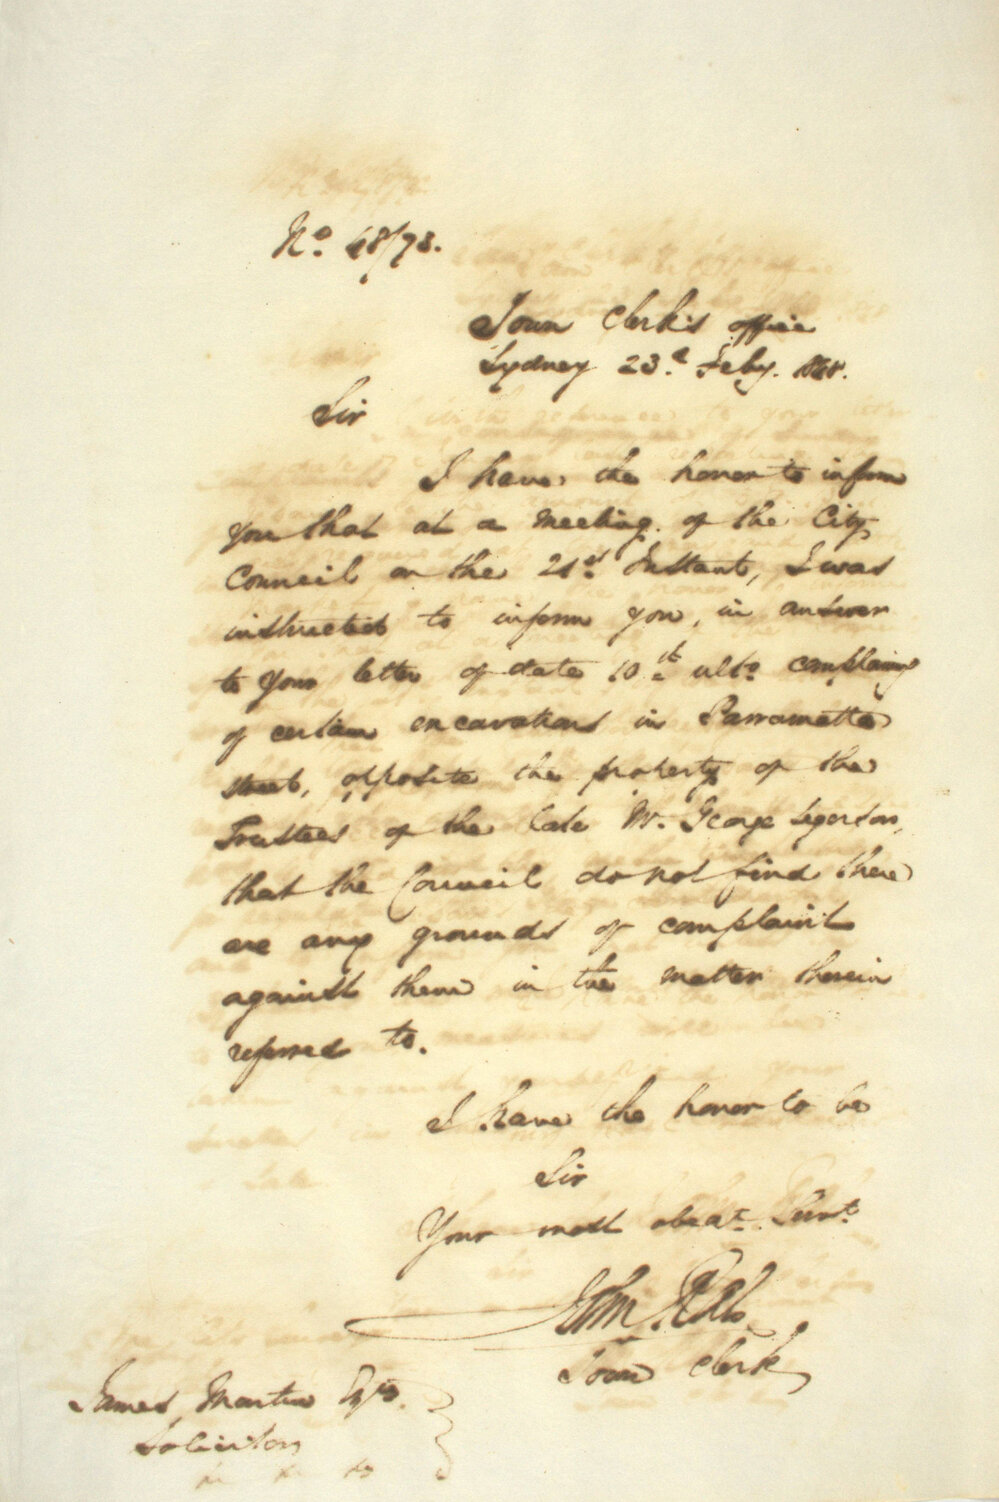 No. 48/73.
Town Clerk's office
Sydney 23d. Feby. 1848.
Sir
I have the honor to inform
you that at a meeting of the City
Council on the 21st. Instant, I was
instructed to inform you, in answer
to your letter of date 10th. ulto. complaing
of certain excavations in Parramatta
street, opposite the property of the
Trustees of the late Mr. George
that the Council do not find there
are any grounds of complaint
against them in the matter therein
referred to.
I have the honor to be
Sir
Your most obedt. Servt.
John
Town Clerk
James Martin Esqre.
Solicitor